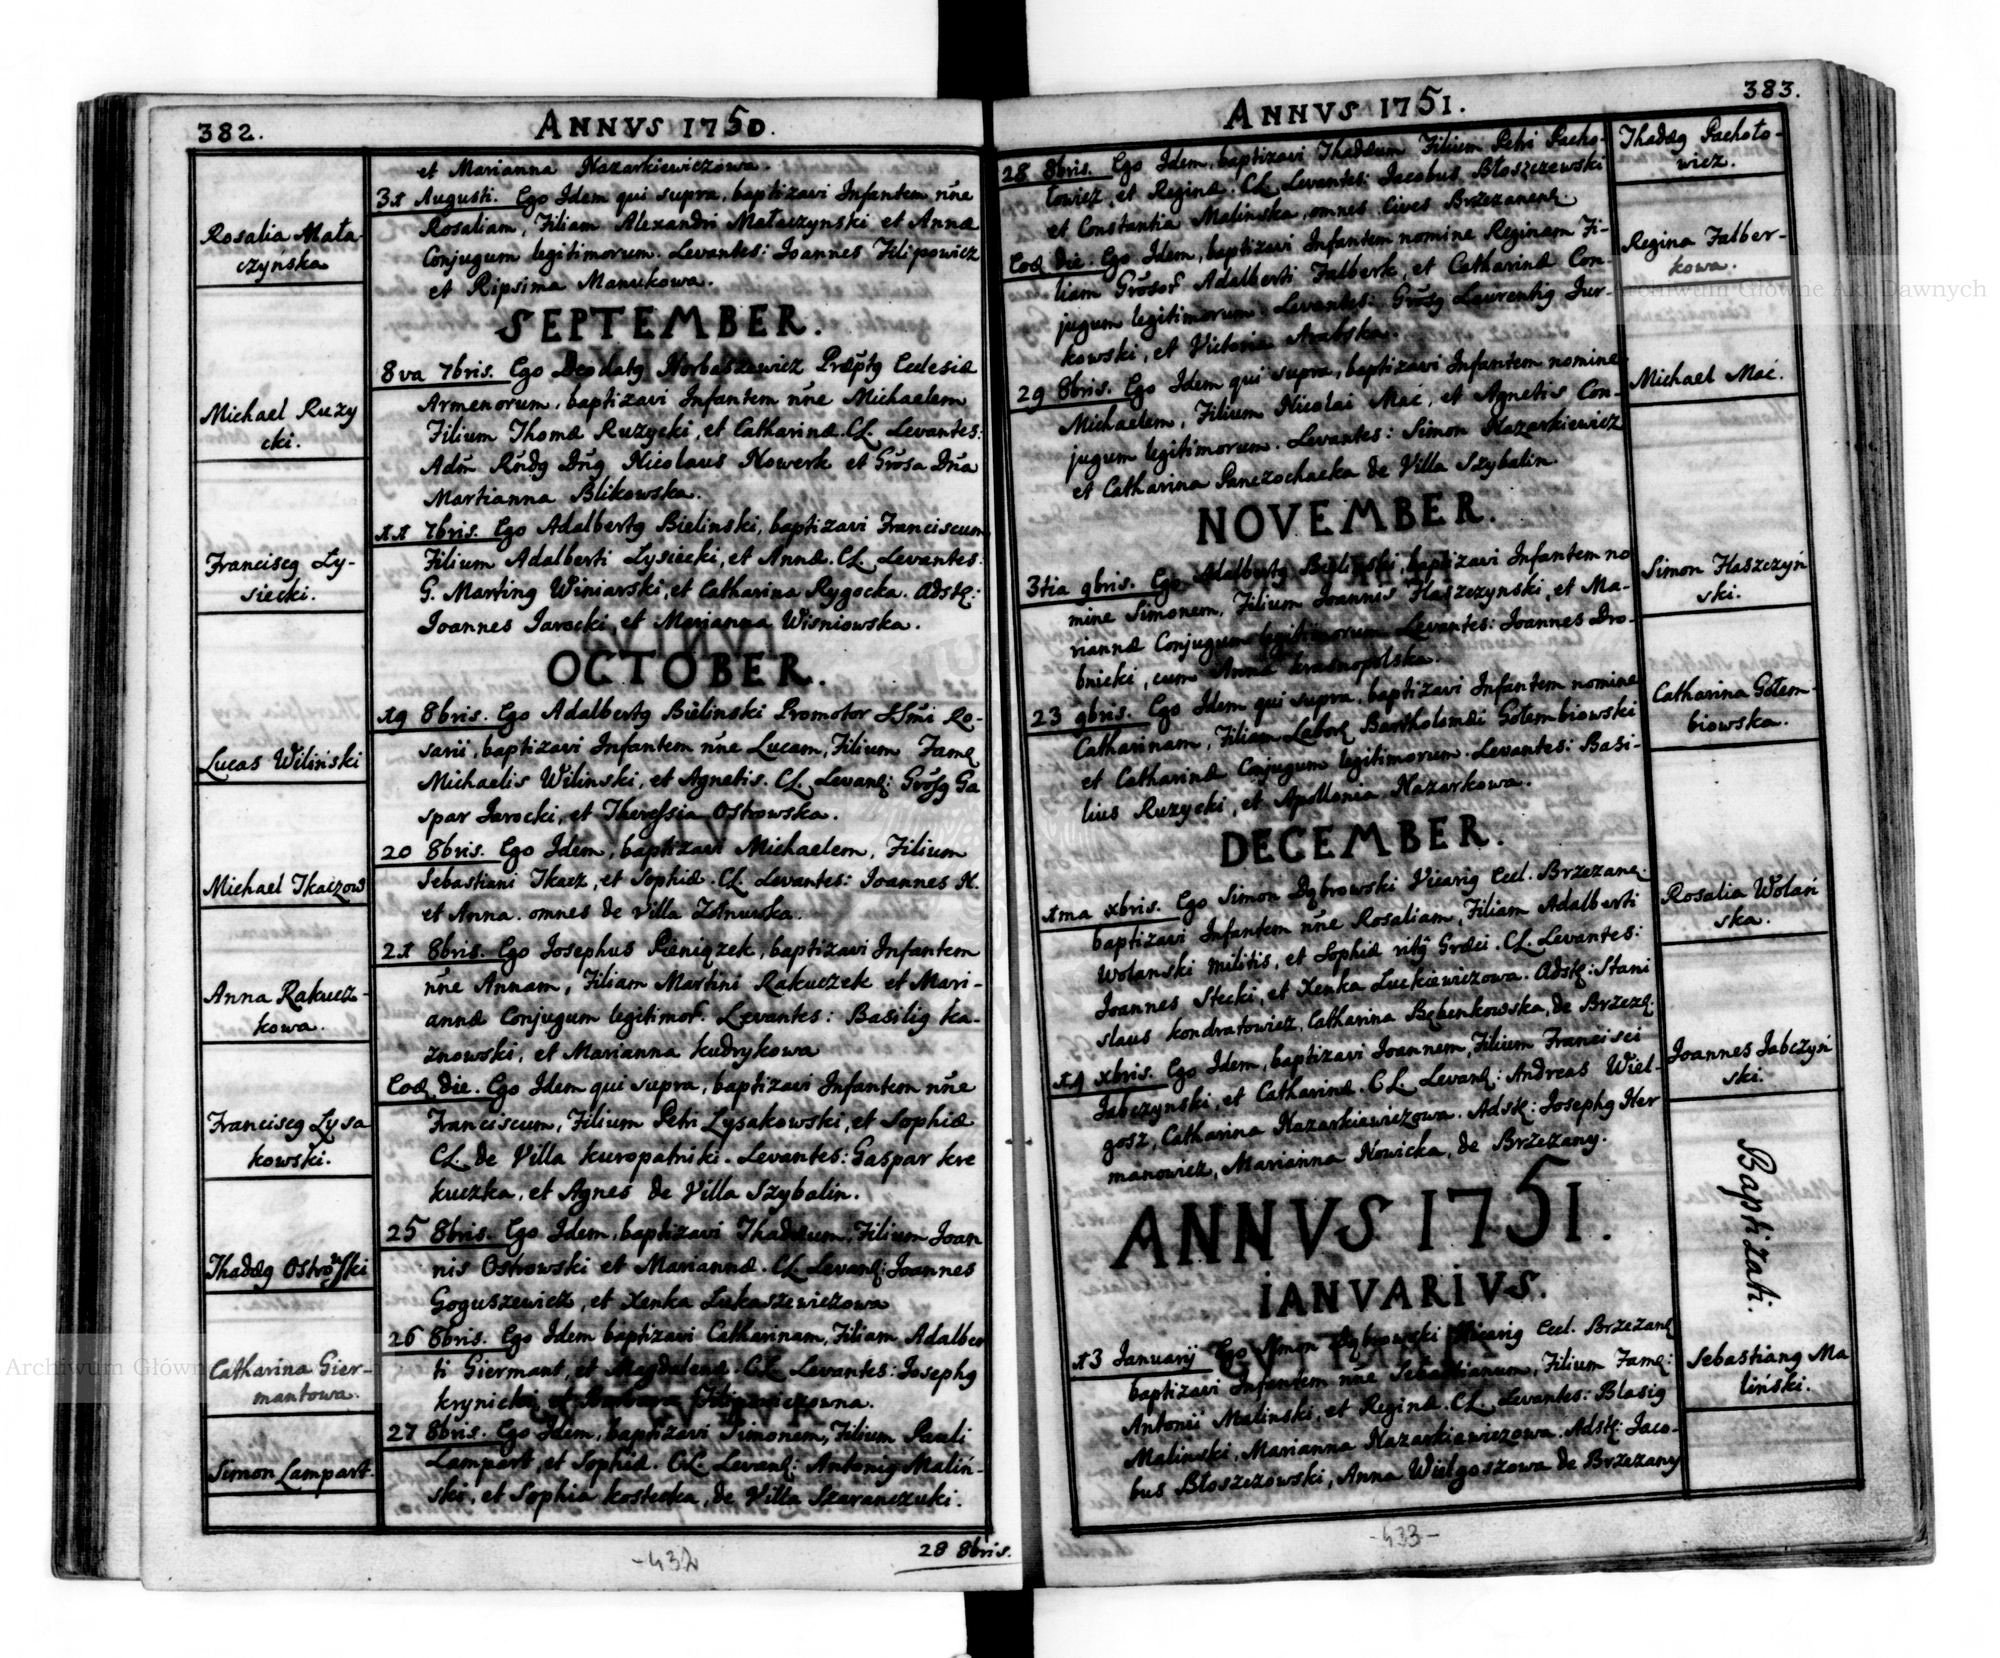 382.
ANNVS 1750.
et Marianna Nazarkiewiczowa.
31 Augusti. Ego Idem qui supra, baptizavi Infantem nn̄e
Rosaliam, Filiam Alexandri Małaczynski et Annæ
Conjugum legitimorum. Levantes: Joannes Filipowicz
et Ripsima Manukowa.
Rosalia Mała-
czyńska
SEPTEMBER.
8va 7bris. Ego Deodatꝯ Norbaszewicz Præptꝯ Ecclesiæ
Armenorum, baptizavi Infantem nn̄e Michaelem
Filium Thomæ Ruzycki, et Catharinæ. CL. Levantes:
Adm̄ Rn̄dꝯ Dn̄ꝯ Nicolaus Nowerk et Gn̄osa Dn̄a
Martianna Blikowska.
Michael Ruzy
cki.
11 7bris. Ego Adalbertꝯ Bielinski, baptizavi Franciscum
Filium Adalberti Lysiecki, et Annæ. CL. Levantes:
G. Martinꝯ Winiarski, et Catharina Rygocka. Adstꝫ:
Joannes Jarocki, et Marianna Wisniowska.
Franciscꝯ Ly-
siecki.
OCTOBER.
19 8bris. Ego Adalbertꝯ Bielinski Promotor SSmi Ro-
sarii, baptizavi Infantem nn̄e Lucam, Filium Famꝫ
Michaelis Wilinski, et Agnetis. CL. Levanꝫ: Gn̄osꝯ Ga
spar Jarocki, et Theressia Ostrowska.
Lucas Wiliński
20 8bris. Ego Idem, baptizavi Michaelem, Filium
Sebastiani Tkacz, et Sophiæ. CL. Levantes: Joannes N.
et Anna. omnes de Villa
Michael Tkaczow
21 8bris. Ego Josephus Pieniązek, baptizavi Infantem
nn̄e Annam, Filiam Martini Rakuczek et Mari-
annæ Conjugum legitimoꝝ. Levantes: Basiliꝯ Ka-
znowski, et Marianna Kudrykowa
Anna Rakucz-
kowa.
Eoꝫ die. Ego Idem qui supra, baptizavi Infantem nn̄e
Franciscum, Filium Petri Lysakowski, et Sophiæ
CL. de Villa Kuropatniki. Levantes: Gaspar Kre
kuczka, et Agnes de Villa Szybalin.
Franciscꝯ Lysa
kowski.
25 8bris. Ego Idem, baptizavi Thadæum, Filium Joan
nis Ostrowski et Mariannæ. CL Levanꝫ: Joannes
Goguszewicz, et Xenka Łukaszewiczowa
Thadæꝯ Ostrowski
26 8bris. Ego Idem baptizavi Catharinam, Filiam Adalber
ti Giermant, et Magdalenæ. CL Levantes: Josephꝯ
Krynicki, et Barbara Filipowiczowna.
Catharina Gier-
mantowa.
27 8bris. Ego Idem, baptizavi Simonem, Filium Pauli
Lampart, et Sophiæ. CL. Levanꝫ: Antoniꝯ Maliń-
ski, et Sophia Kostecka, de Villa Szaranczuki.
Simon Lampart
28 8bris.
-432
383.
ANNVS 1751.
28 8bris. Ego Idem, baptizavi Thadæum Filium Petri Pacho-
łowicz, et Reginæ. CL. Levantes: Jacobus Błoszczewski
et Constantia Malinska, omnes Cives Brzezanenꝫ.
Thadæꝯ Pachoło-
wicz.
Eoꝫ die. Ego Idem, baptizavi Infantem nomine Reginam Fi-
liam Gn̄osoꝝ Adalberti Falberk, et Catharinæ Con-
jugum legitimorum. Levantes: Gn̄osꝯ Laurentiꝯ Jur-
kowski, et Victoria Arabska.
Regina Falber-
kowa.
29 8bris. Ego Idem qui supra, baptizavi Infantem nomine
Michaelem, Filium Nicolai Mać, et Agnetis Con-
jugum legitimorum. Levantes: Simon Nazarkiewicz
et Catharina Panczochacka de Villa Szybalin.
Michael Mać.
NOVEMBER.
3tia 9bris. Ego Adalbertꝯ Bielinski, baptizavi Infantem no
mine Simonem, Filium Joannes Haszczynski, et Ma-
riannæ Conjugum legitimorum Levantes: Joannes Dro-
bnicki, cum Anna Krasnopolska.
Simon Haszczyń
ski.
23 9bris. Ego Idem qui supra, baptizavi Infantem nomine
Catharinam, Filiam Laboꝫ Bartholomæi Gołembiowski
et Catharinæ Conjugum legitimorum. Levantes: Basi-
lius Ruzycki, et Apollonia Nazarkowa.
Catharina Gołem-
biowska.
DECEMBER.
1ma xbris. Ego Simon Dąbrowski Vicariꝯ Eccl. Brzezanꝫ.
baptizavi Infantem nn̄e Rosaliam, Filiam Adalberti
Wolanski militis, et Sophiæ ritꝯ Græci. CL. Levantes:
Joannes Stecki, et Xenka Luckiewiczowa. Adstꝫ: Stani
slaus Kondratowicz, Catharina Bębenkowska, de Brzezꝫ.
Rosalia Wolań
ska.
19 xbris. Ego Idem, baptizavi Joannem, Filium Francisci
Jabczynski, et Catharinæ. CL. Levanꝫ: Andreas Wiel-
gosz, Catharina Nazarkiewiczowa. Adstꝫ: Josephꝯ Her
manowicz, Marianna Nowicka, de Brzezany.
Joannes Jabczyń
ski.
ANNVS 1751.
Baptizati.
IANVARIVS.
13 Januarij Ego Simon Dąbrowski Vicariꝯ Eccl. Brzezanꝫ
baptizavi Infantem nn̄e Sebastianum, Filium Famꝫ:
Antonii Malinski, et Reginæ. CL. Levantes: Blasiꝯ
Malinski, Marianna Nazarkiewiczowa. Adstꝫ: Jaco-
bus Błoszczowski, Anna Wielgoszowa de Brzezany
Sebastianꝯ Ma
liński.
-433-
Archiwum Główne Akt Dawnych
Archiwum Główne